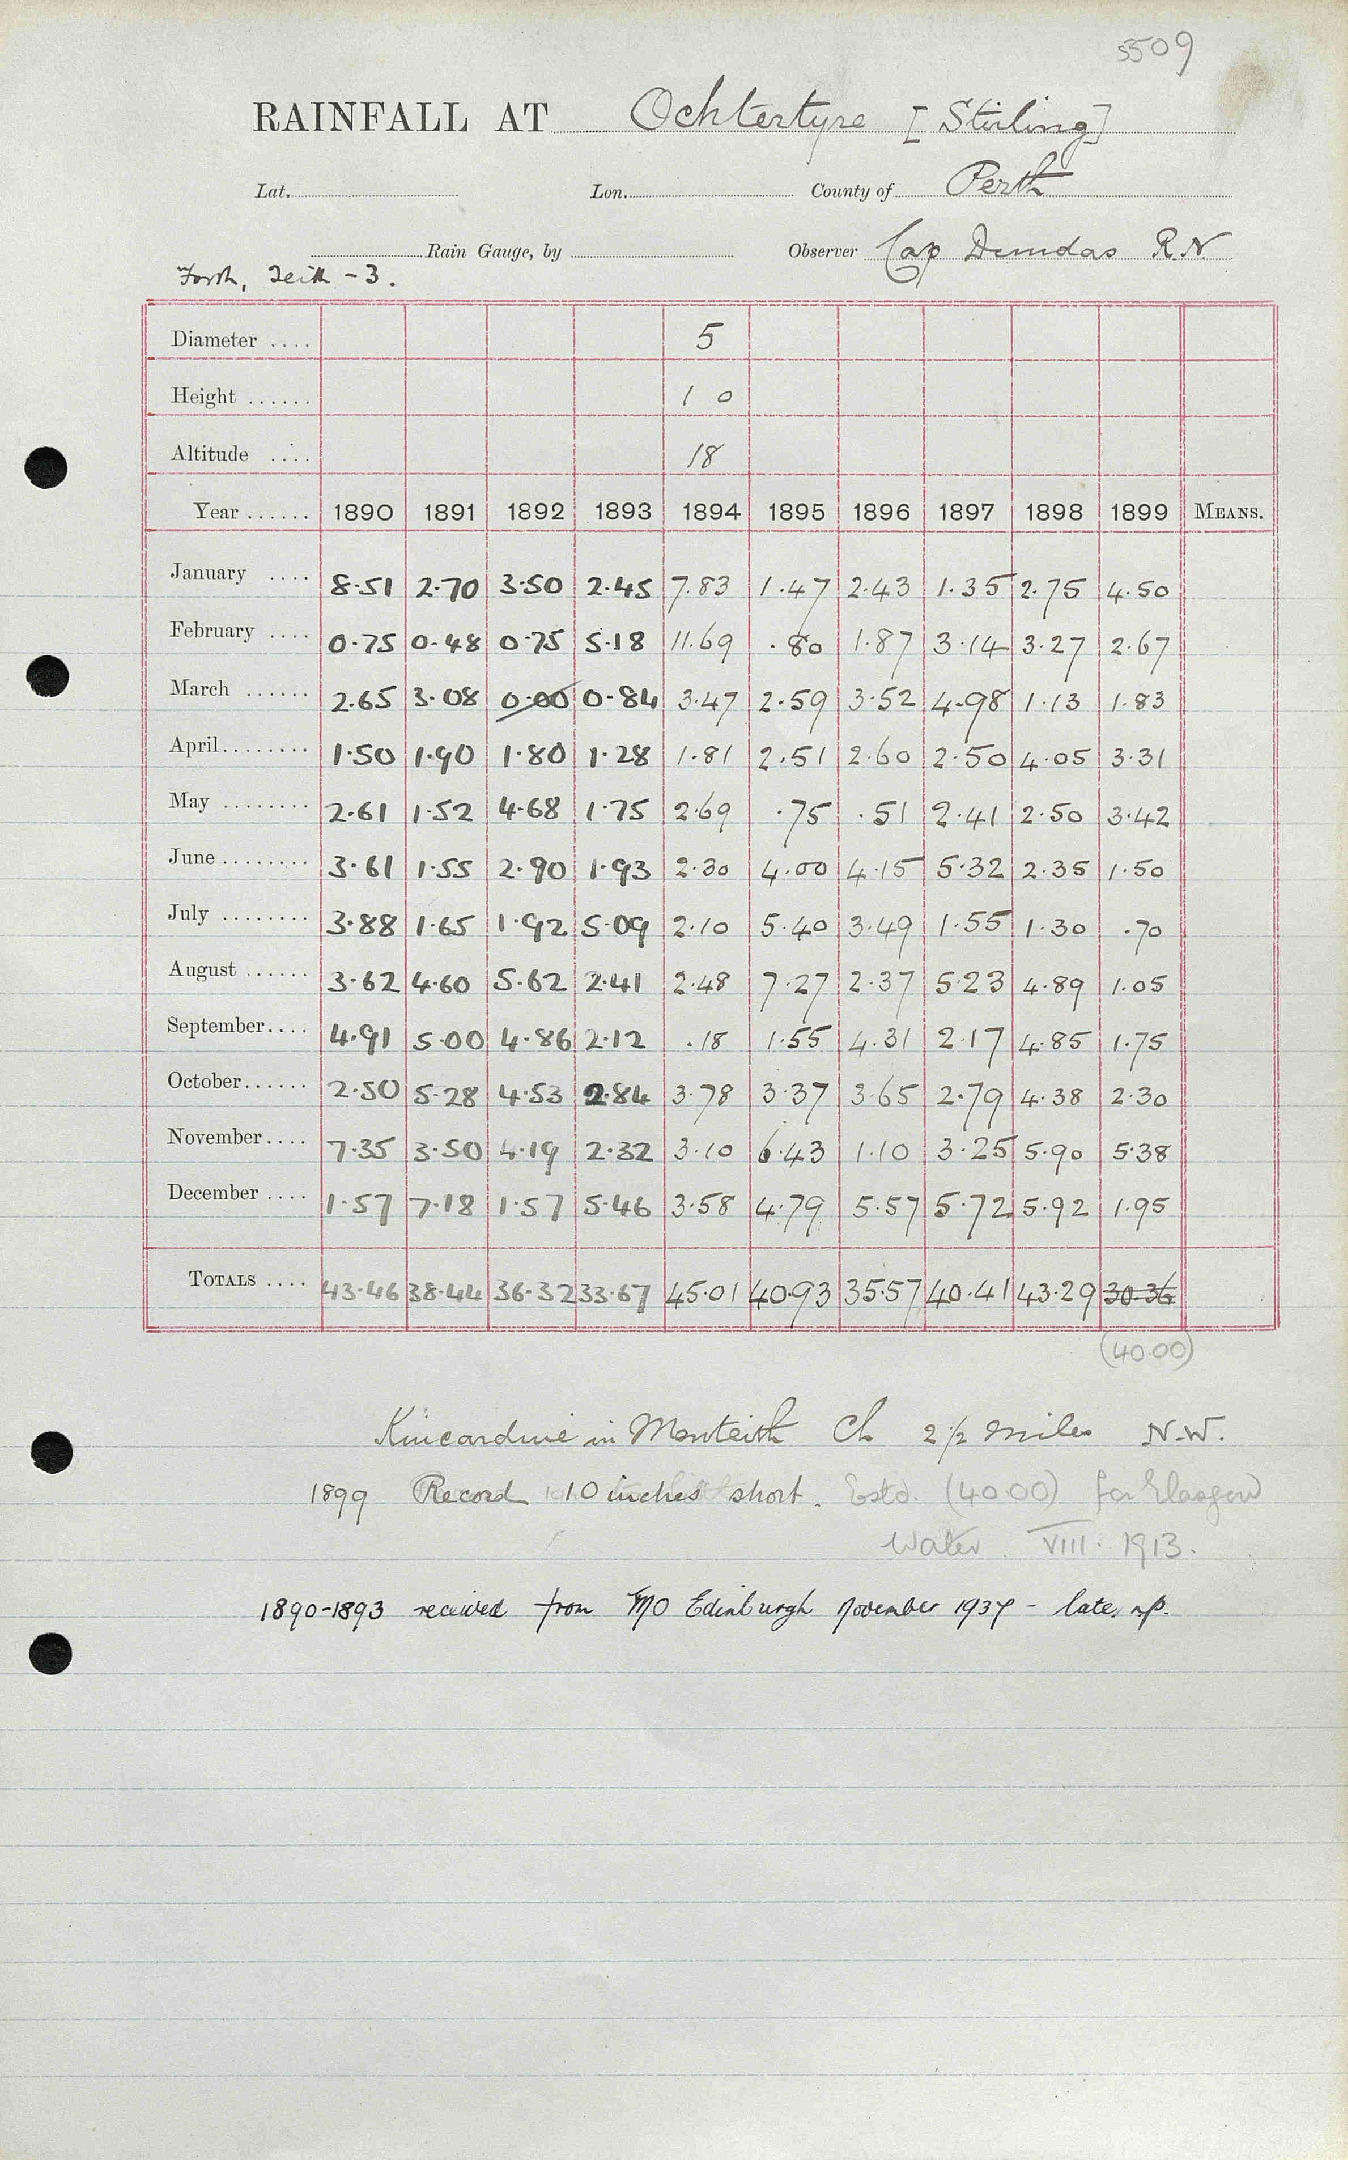 5509
RAINFALL AT Ochtertyre [Stirling]
Lat. Lon. County of Perth
Rain Gauge, by Observer Cap Dundas R.N
Forth, Teith - 3.
Diameter .... 5
Height ...... 1 0
Altitude .... 18
Year ...... 1890 1891 1892 1893 1894 1895 1896 1897 1898 1899 MEANS.
January .... 8.51 2.70 3.50 2.45 7.83 1.47 2.43 1.35 2.75 4.50
February .... 0.75 0.48 0.75 5.18 11.69 .80 1.87 3.14 3.27 2.67
March ...... 2.65 3.08 0.00 0.84 3.47 2.59 3.52 4.98 1.13 1.83
April........ 1.50 1.90 1.80 1.28 1.81 2.51 2.60 2.50 4.05 3.31
May ........ 2.61 1.52 4.68 1.75 2.69 .75 .51 2.41 2.50 3.42
June ........ 3.61 1.55 2.90 1.93 2.30 4.00 4.15 5.32 2.35 1.50
July ........ 3.88 1.65 1.92 5.09 2.10 5.40 3.49 1.55 1.30 .70
August ...... 3.62 4.60 5.62 2.41 2.48 7.27 2.37 5.23 4.89 1.05
September.... 4.91 5.00 4.86 2.12 .18 1.55 4.31 2.17 4.85 1.75
October...... 2.50 5.28 4.53 2.84 3.78 3.37 3.65 2.79 4.38 2.30
November.... 7.35 3.50 4.19 2.32 3.10 6.43 1.10 3.25 5.90 5.38
December .... 1.57 7.18 1.57 5.46 3.58 4.79 5.57 5.72 5.92 1.95
TOTALS .... 43.46 38.44 36.32 33.67 45.01 40.93 35.57 40.41 43.29 30.36
(40.00)
Kincardine in Monteith Ch 2 1/2 miles N.W.
1899 Record 10 inches short. Estd. (40.00) for Glasgow
Water VIII. 1913.
1890-1893 received from MO Edinburgh November 1937 - late